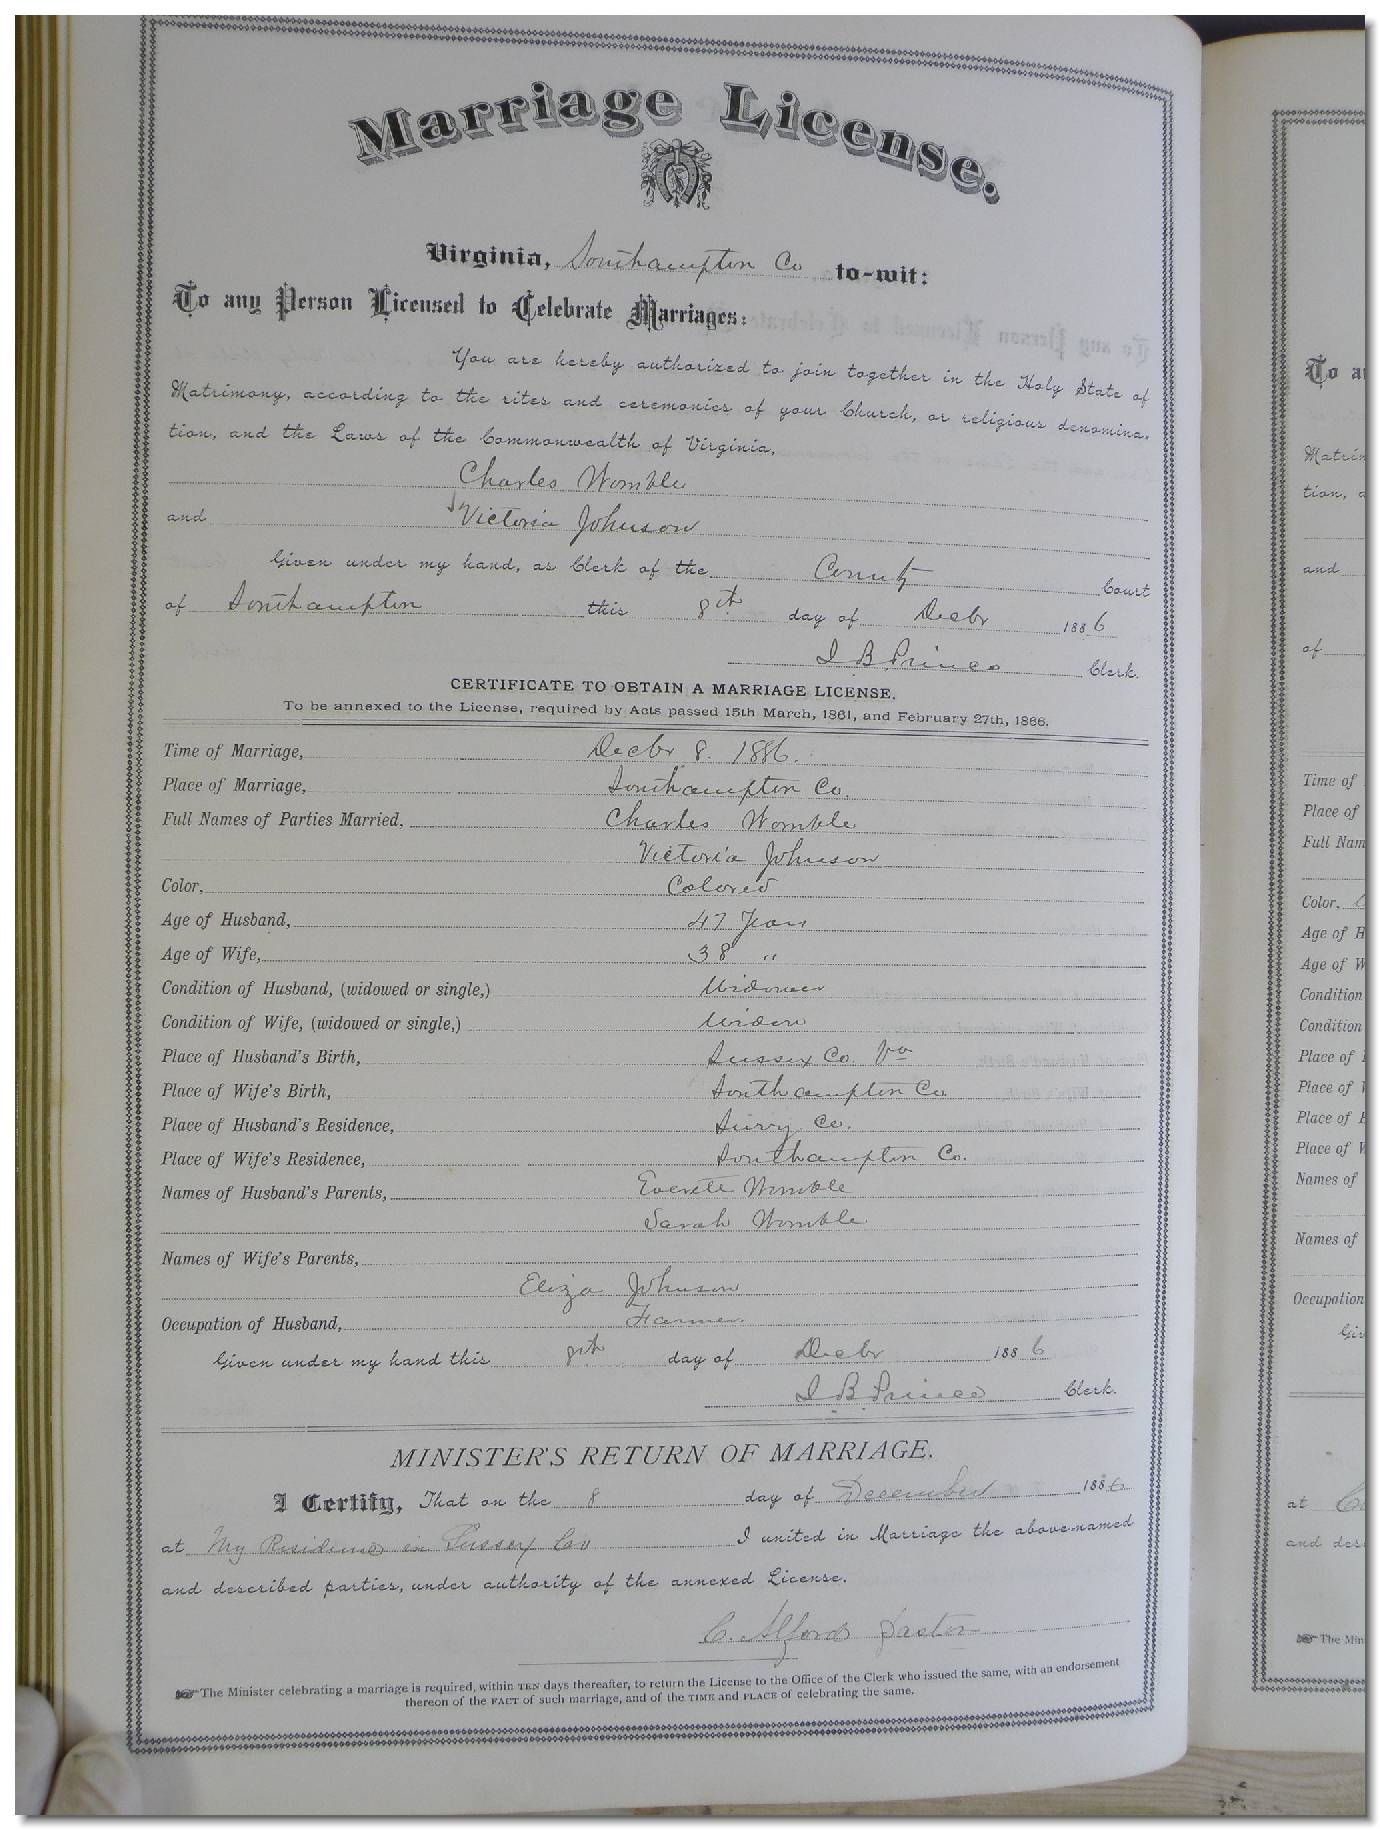 Marriage License.
Virginia, Southampton Co to-wit:
To any Person Licensed to Celebrate Marriages:
You are hereby authorized to join together in the Holy State of
Matrimony, according to the rites and ceremonies of your Church, or religious denomina-
tion, and the Laws of the Commonwealth of Virginia,
Charles Womble
and Victoria Johnson
Given under my hand, as Clerk of the County Court
of Southampton this 8th day of Decbr 1886
I B Prince Clerk.
CERTIFICATE TO OBTAIN A MARRIAGE LICENSE.
To be annexed to the License, required by Acts passed 15th March, 1861, and February 27th, 1866.
Time of Marriage, Decbr 8. 1886.
Place of Marriage, Southampton Co.
Full Names of Parties Married, Charles Womble
Victoria Johnson
Color, Colored
Age of Husband, 47 Years
Age of Wife, 38 "
Condition of Husband, (widowed or single,) Widower
Condition of Wife, (widowed or single,) Widow
Place of Husband's Birth, Sussex Co. Va
Place of Wife's Birth, Southampton Co
Place of Husband's Residence, Surry Co.
Place of Wife's Residence, Southampton Co.
Names of Husband's Parents, Everette Womble
Sarah Womble
Names of Wife's Parents,
Eliza Johnson
Occupation of Husband, Farmer.
Given under my hand this 8th day of Decbr 1886
I B Prince Clerk.
MINISTER'S RETURN OF MARRIAGE.
I Certify, That on the 8 day of December 1886
at My Residence in Sussex Co I united in Marriage the above-named
and described parties, under authority of the annexed License.
C. Alford Pastor
The Minister celebrating a marriage is required, within TEN days thereafter, to return the License to the Office of the Clerk who issued the same, with an endorsement
thereon of the FACT of such marriage, and of the TIME and PLACE of celebrating the same.
To a
Matrim
tion, a
and
of
Time of
Place of
Full Nam
Color,
Age of H
Age of W
Condition
Condition
Place of
Place of
Place of
Place of
Names of
Names of
Occupation
Giv
at
and des
The Min